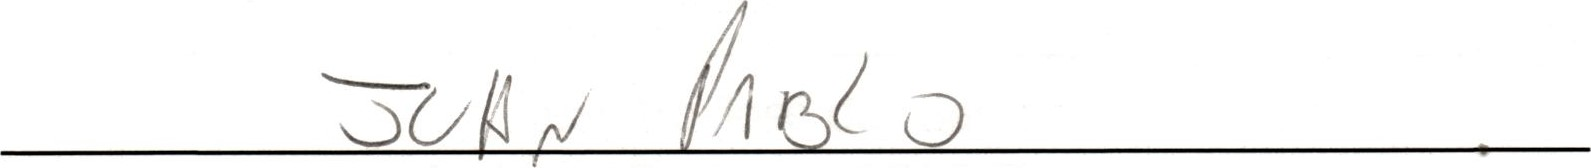 JUAN PABLO